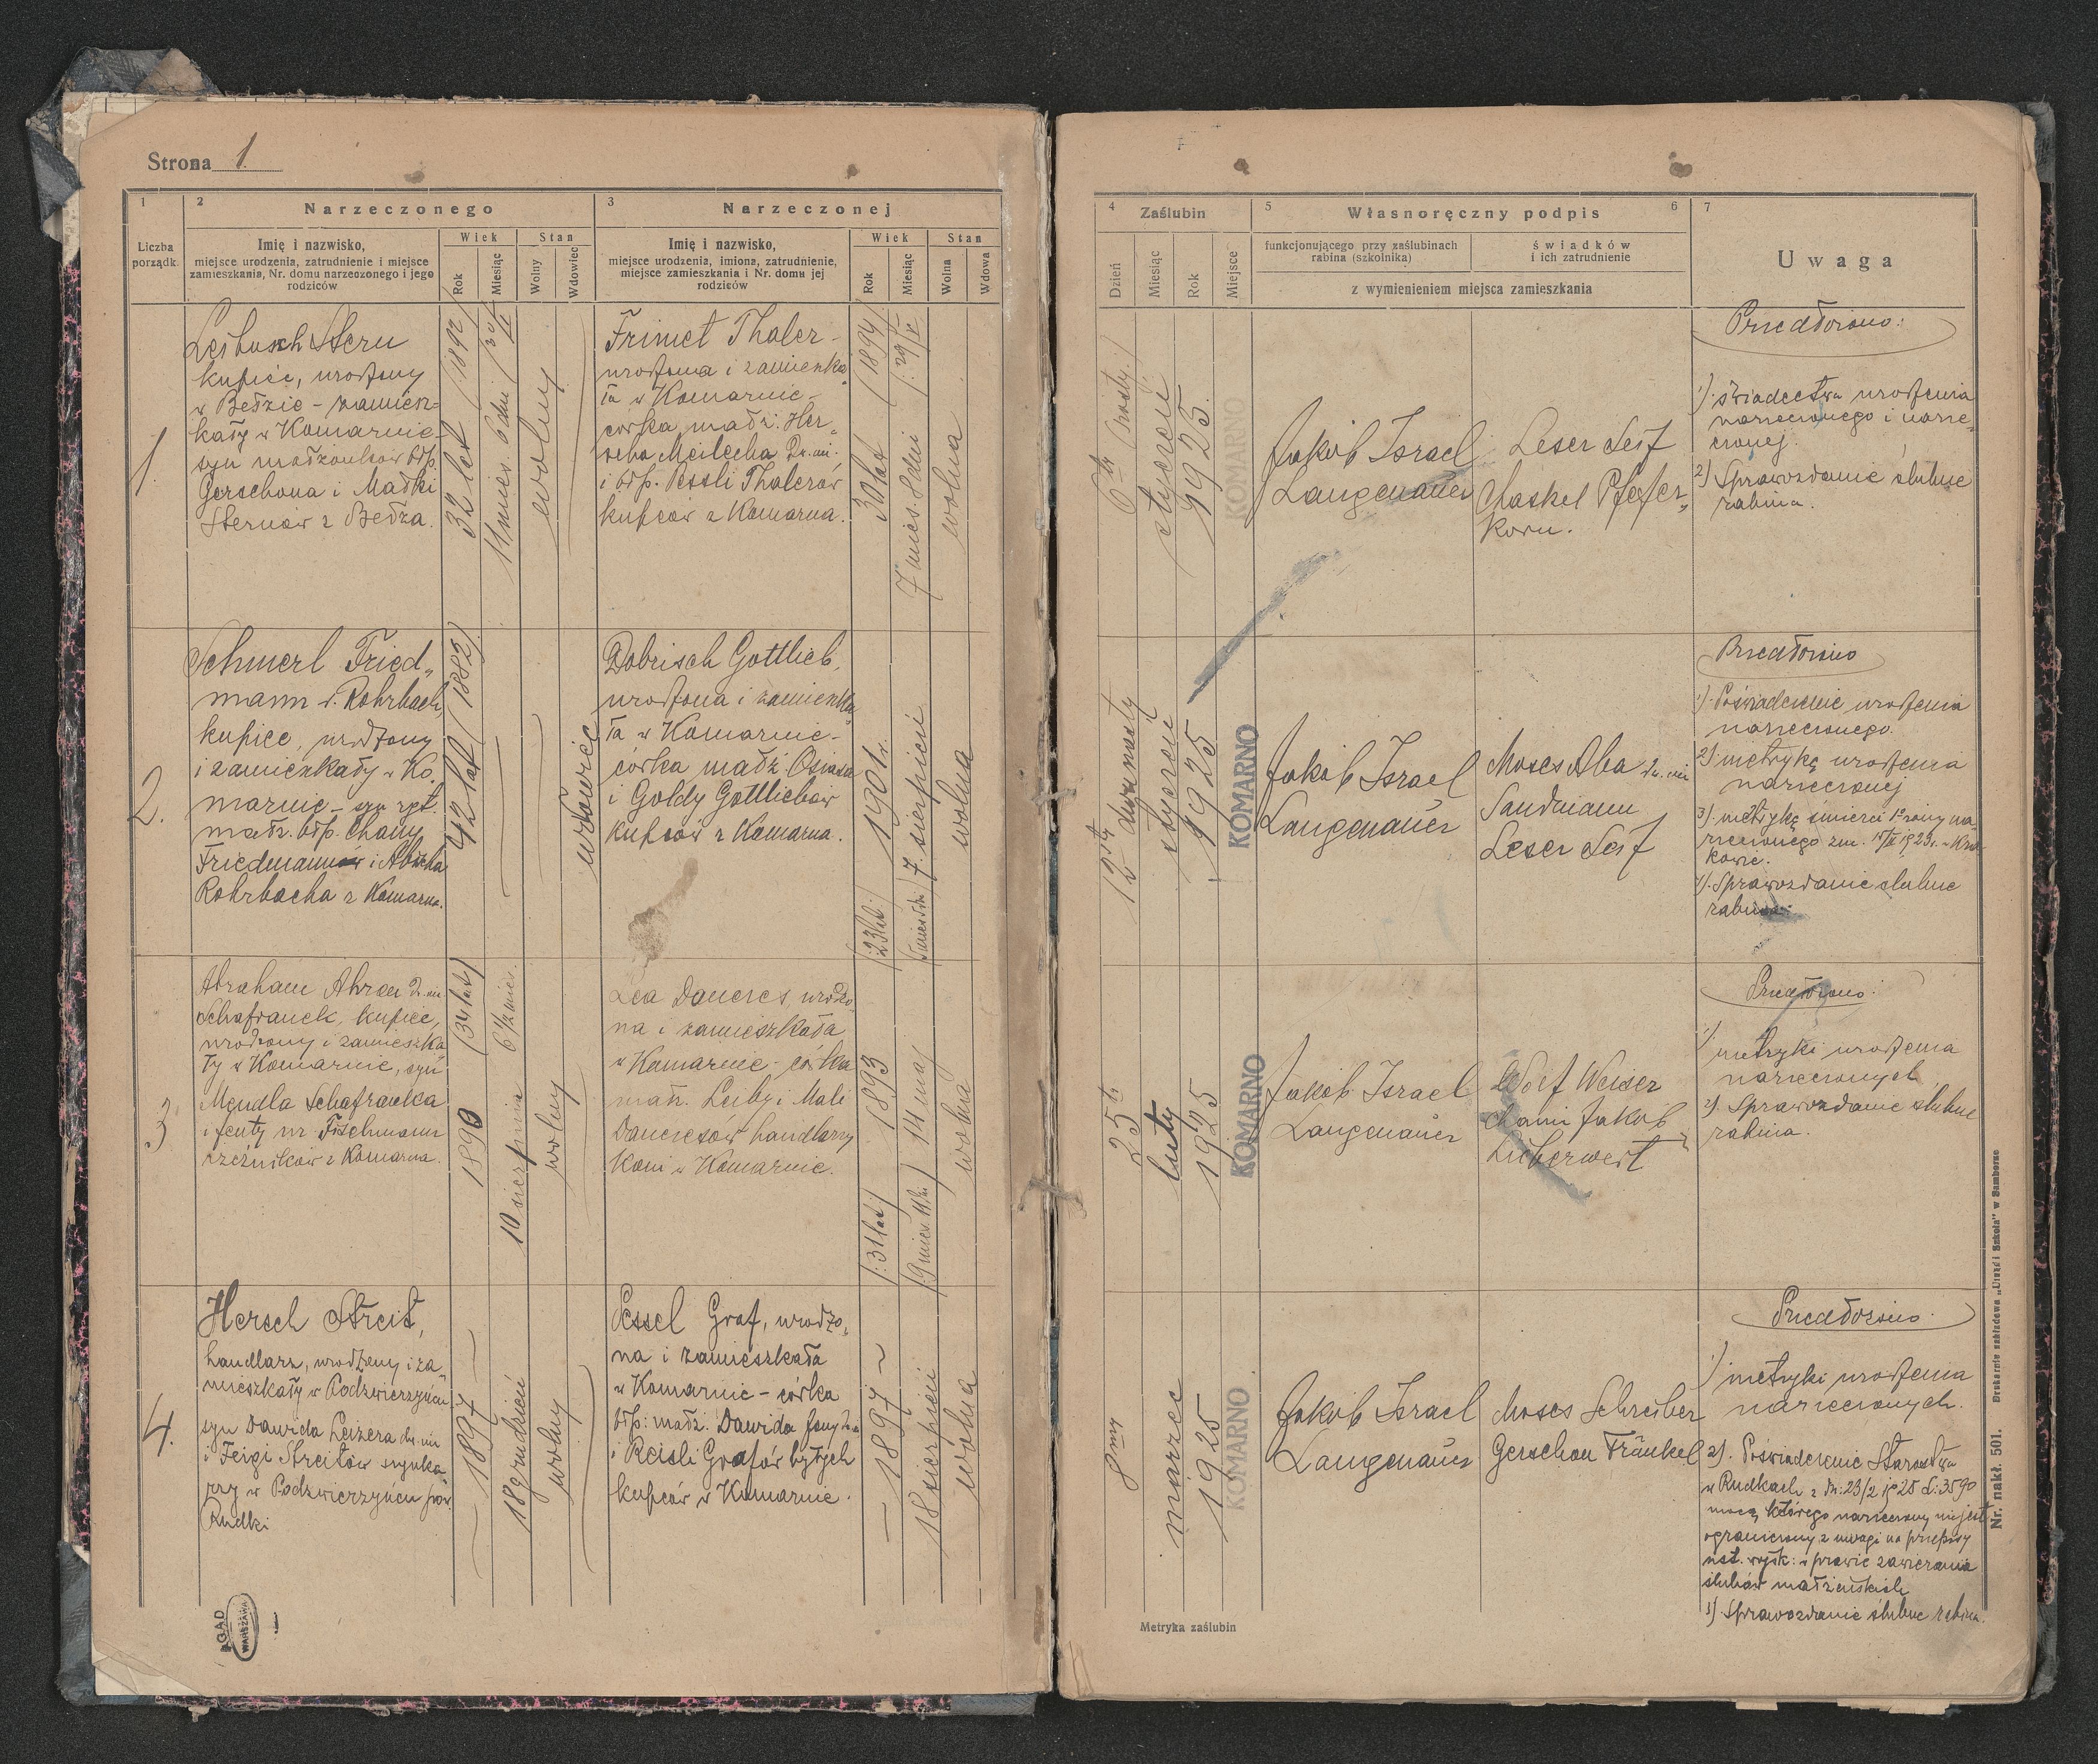 Strona 1.
1
2
Narzeczonego
3
Narzeczonej
Liczba
porządk.
Imię i nazwisko,
miejsce urodzenia, zatrudnienie i miejsce
zamieszkania, Nr. domu narzeczonego i jego
rodziców
Wiek
Stan
Rok
Miesiąc
Wolny
Wdowiec
Imię i nazwisko,
miejsce urodzenia, imiona, zatrudnienie,
miejsce zamieszkania i Nr. domu jej
rodziców
Wiek
Stan
Rok
Miesiąc
Wolna
Wdowa
1.
Leibusch Stern
kupiec, urodzony
w Bełzie - zamiesz=
kały w Komarnie -
syn małżonków błp.
Gerschona i Małki
Sternów z Bełza.
32 lat (1892)
11 mies. 6 dni
wolny
Frimet Thaler -
urodzona i zamieszka„
ła w Komarnie -
córka małż: Her„
scha Meilecha 2w. im.
i błp. Pessli Thalerów
kupców z Komarna.
30 lat (1894)
7 mies 8 dni
wolna
2.
Schmerl Fried„
mann v. Rohrbach,
kupiec, urodzony
i zamieszkały w Ko„
marnie - syn ryt.
małz. błp. Chany
Friedmannów i Abischa
Rohrbacha z Komarna.
42 lat (1882)
wdowiec
Dobrisch Gottlieb,
urodzona i zamieszka„
ła w Komarnie -
córka małż. Osiasa
i Goldy Gottliebów
kupców z Komarna.
1901 r.
(:23 lat:)
7. sierpień
wolna
3
Abraham Ahron 2w. im
Schafranek, kupiec,
urodzony i zamieszka„
ły w Komarnie, syn
Mendla Schafranka
i Jenty nr Fischmann
rzeźników z Komarna.
1890
(34 lat)
10 sierpnia
6 1/2 mies.
wolny
Lea Daneres, urodzo„
na i zamieszkała
w Komarnie - córka
małż. Leiby i Mali
Daneresów handlarzy
koni w Komarnie.
1893
(:31 lat:)
14 maj
wolna
4.
Hersch Streit,
handlarz, urodzony i za„
mieszkały w Podzwierzyńcu
syn Dawida Leizera dw. im
i Feigi Streitów szynka„
rzy w Podzwierzyńcu pow.
Rudki
- 1897 -
18 grudzień
wolny
Pessel Graf, urodzo„
na i zamieszkała
w Komarnie - córka
błp: małż. Dawida
i Reisli Grafów byłych
kupców w Komarnie.
- 1897 -
18 sierpień
wolna
AGAD
WARSZAWA
4
Zaślubin
5
Własnoręczny podpis
6
7
Dzień
Miesiąc
Rok
Miejsce
funkcjonującego przy zaślubinach
rabina (szkolnika)
świadków
i ich zatrudnienie
z wymienieniem miejsca zamieszkania
Uwaga
6ty (szósty)
styczeń
1925.
KOMARNO
Jakób Israel
Langenauer
Leser Seif
Chaskel Pfeffer„
korn.
Przedłożono:
1). świadectwa urodzenia
narzeczonego i narze„
czonej.
2) Sprawozdanie ślubne
rabina.
12sty dwunasty
styczeń
1925
KOMARNO
Jakób Israel
Langenauer
Moses Aba 2w. im
Sandmann
Leser Seif
Przedłożono
1). Poświadczenie urodzenia
narzeczonego.
2) metrykę urodzenia
narzeczonej
3). metrykę śmierci 1ej żony na„
rzeczonego
4). Sprawozdanie ślubne
rabina.
25ty
luty
1925
KOMARNO
Jakób Israel
Langenauer
Wolf Weiser
Chaim Jakób
Lieberwert
Przedłożono:
1) metryki urodzenia
narzeczonych
2). Sprawozdanie ślubne
rabina.
8my
marzec
1925
KOMARNO
Jakób Israel
Langenauer
Moses Schreiber
Gerschon Fränkel
Przedłożono:
1) metryki urodzenia
narzeczonych.
2). Poświadczenie Starostwa
w Rudkach z dn: 23/2 1925 L: 3590
mocą którego narzeczony nie jest
ograniczony z uwagi na przepisy
ust. wojsk: w prawie zawierania
ślubów małżeńskich
3). Sprawozdanie ślubne rabina.
Metryka zaślubin
Nr. nakł. 501.
Drukarnia zakładowa „Urząd i Szkoła" w Samborze